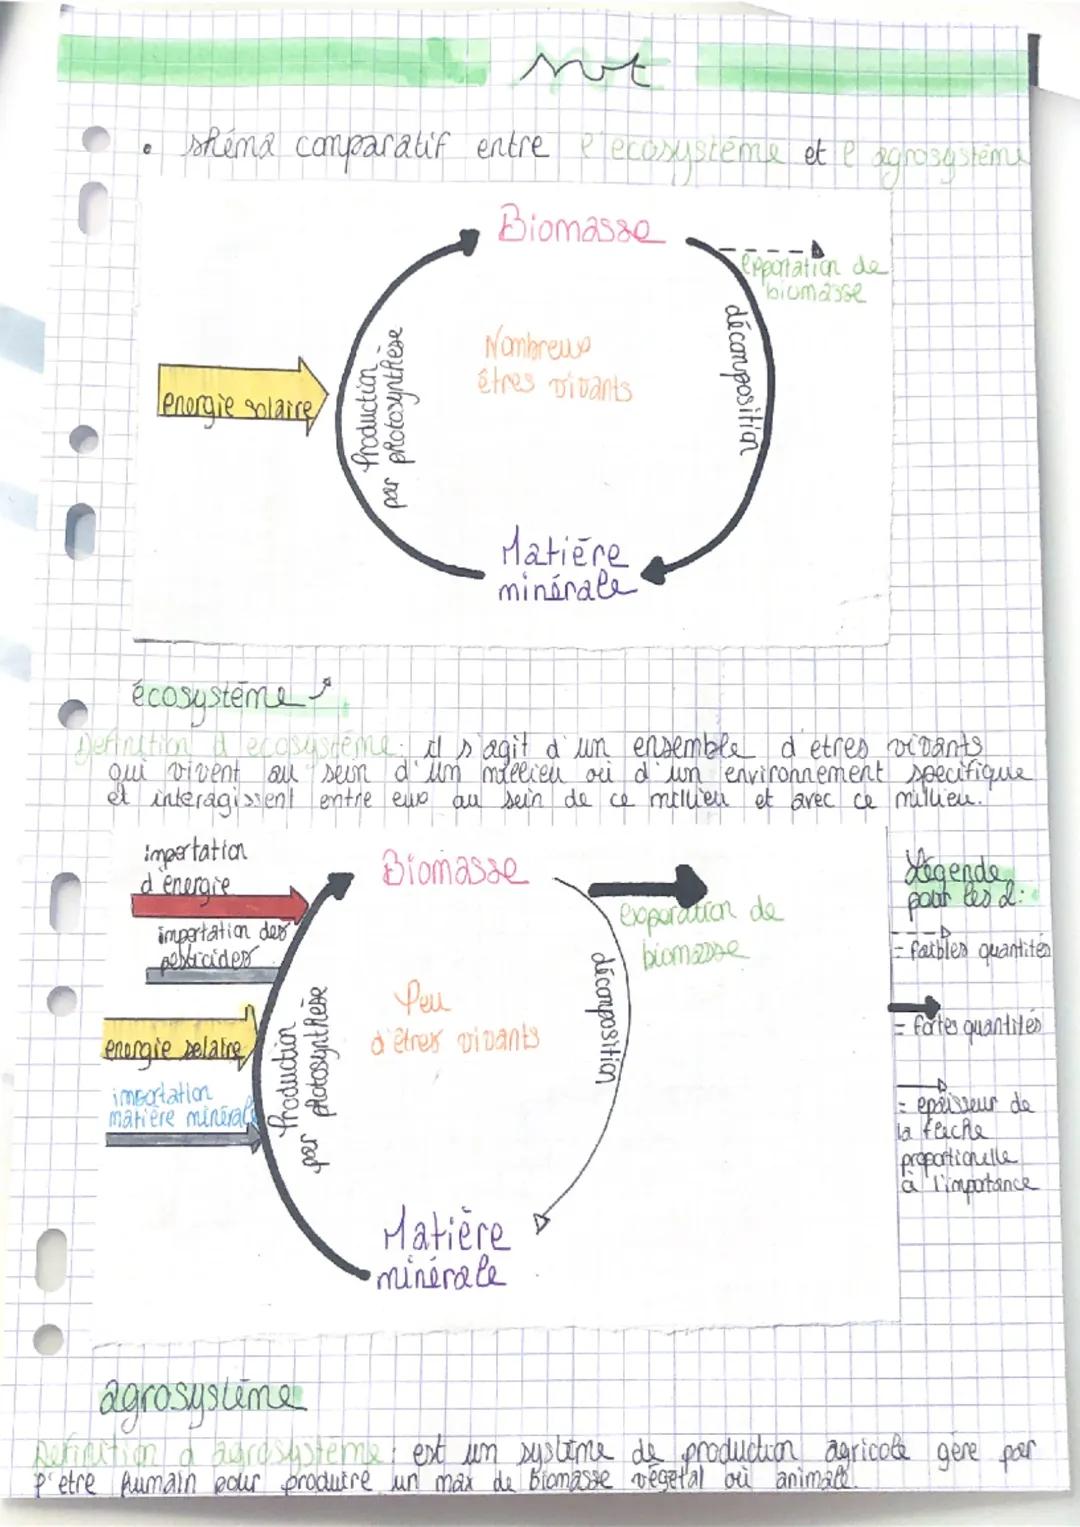 svt
• shéma comparatif entre l'ecosystème et l'agrosystème
Biomasse
exportation de
biomasse
Nombreux
êtres vivants
décomposition
Production
par photosynthèse
energie solaire
Matière
minérale
écosystème
Definition d'ecosystème: il s'agit d'un ensemble d'etres vivants
qui vivent au sein d'un millieu ou d'un environnement specifique
et interagissent entre eux au sein de ce millieu et avec ce millieu.
importation
d'énergie
importation des
pesticides
energie solaire
importation
matière minérale
Biomasse
exporation de
biomasse
Peu
d'êtres vivants
décomposition
Production
par photosynthèse
Matière
minérale
Légende
pour les 2:
= faibles quantités
= fortes quantités
= epaisseur de
la fleche
proportionelle
à l'importance
agrosystème
Definition d'agrosystème: est un système de production agricole gère par
l'etre humain pour produire un max de biomasse végetal ou animale.